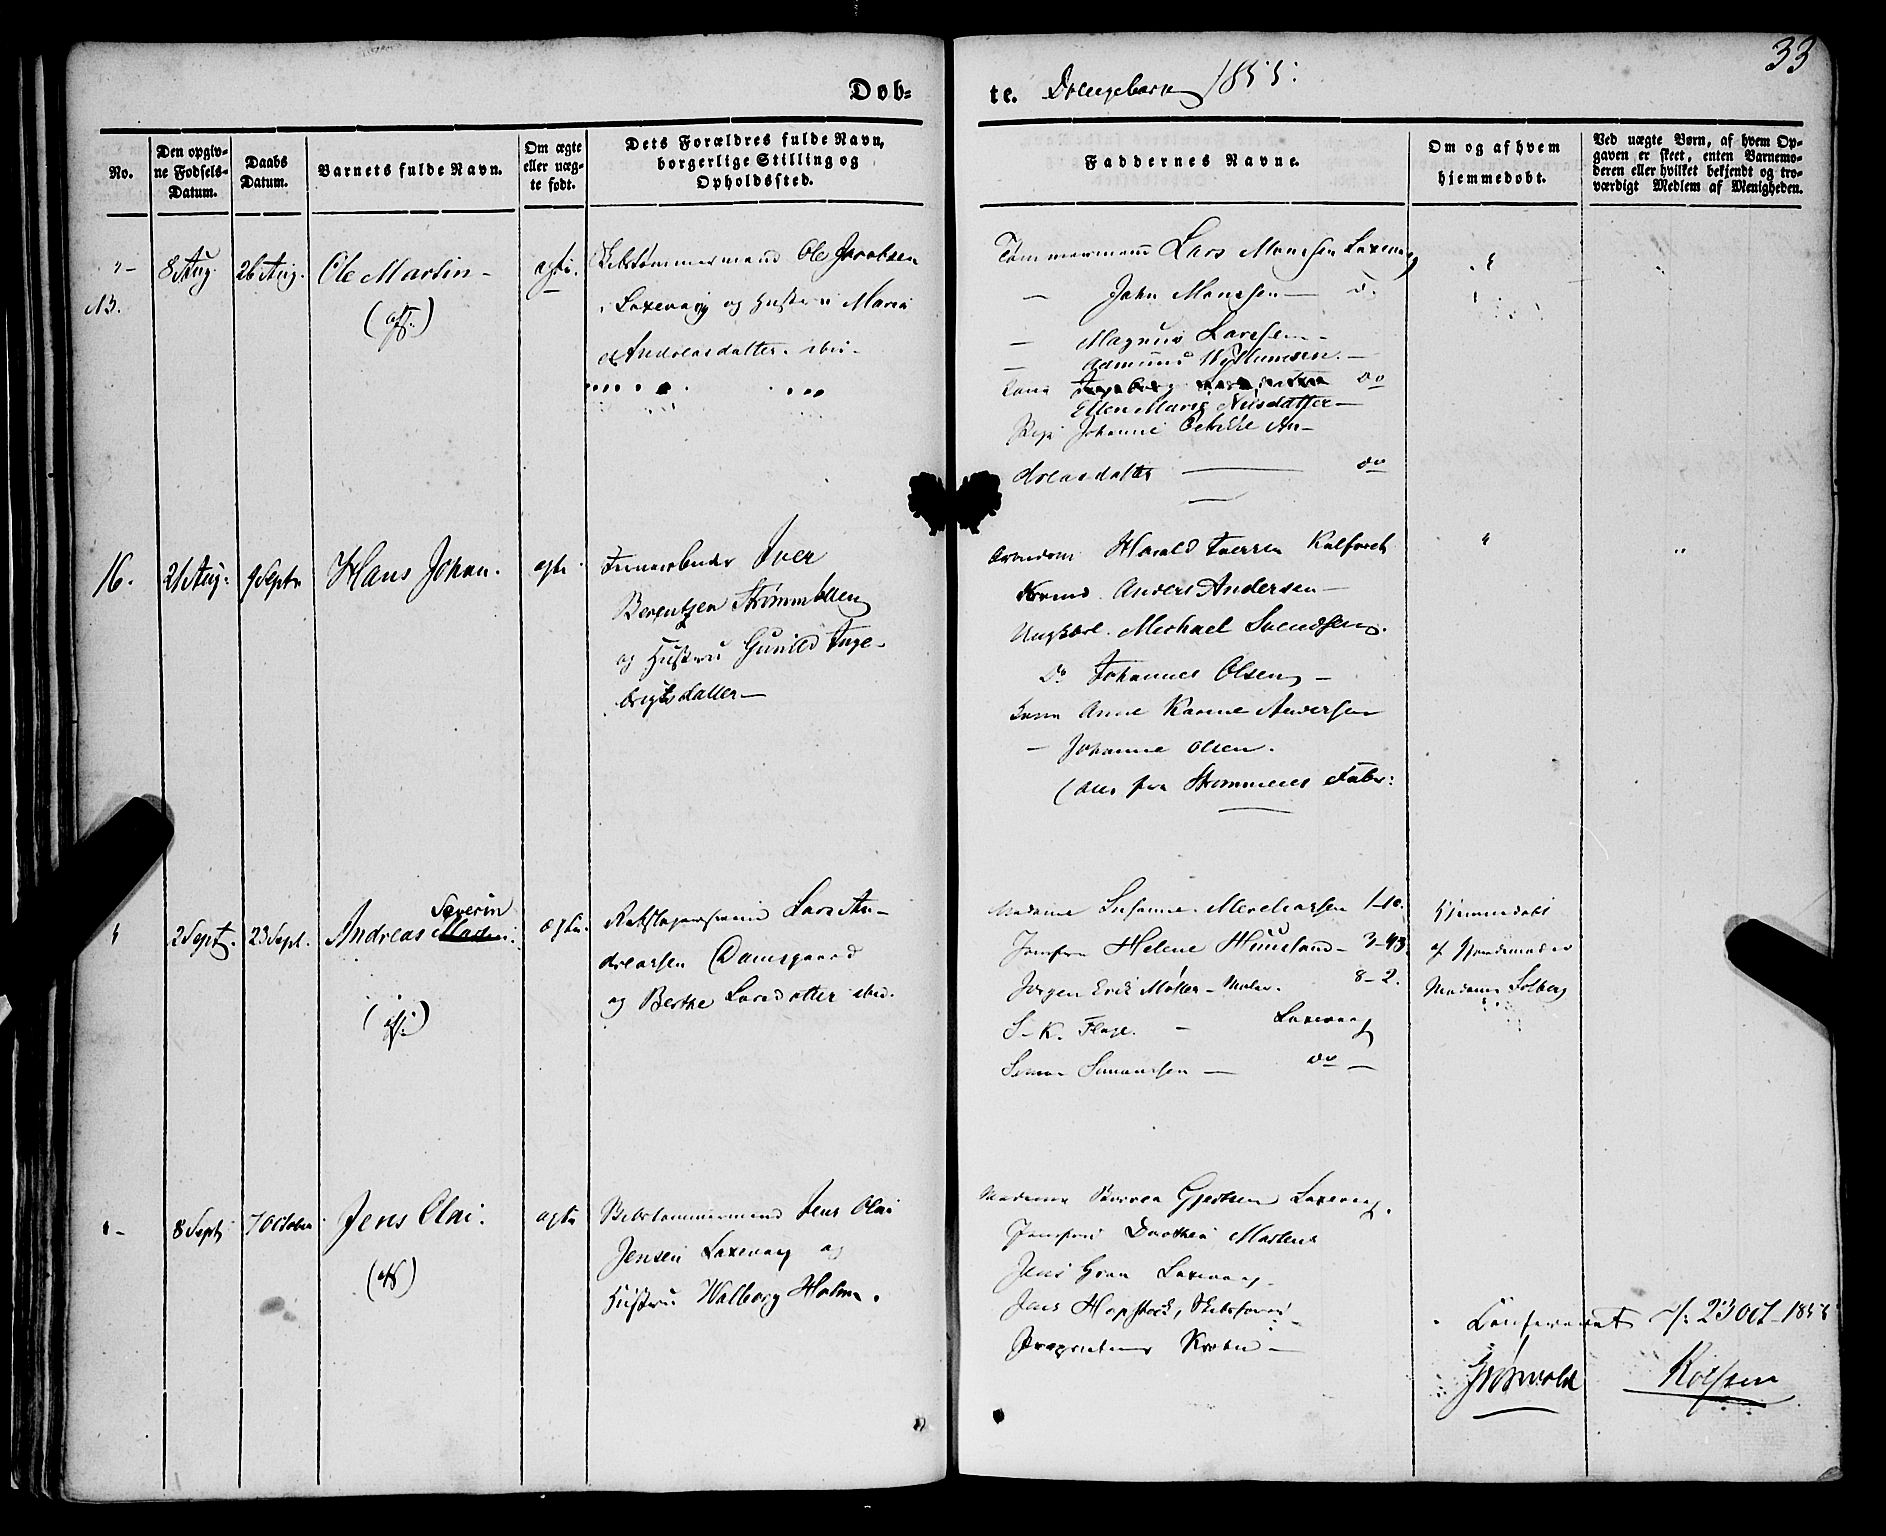 33
Døb-
te. Drengebørn 1855.
No.
Den opgiv-
ne Fødsels-
Datum.
Daabs
Datum.
Barnets fulde Navn.
Om ægte
eller uæg-
te født.
Dets Forældres fulde Navn,
borgerlige Stilling og
Opholdssted.
Faddernes Navne.
Om og af hvem
hjemmedøbt.
Ved uægte Børn, af hvem Op-
gaven er skeet, enten Barnemo-
deren eller hvilket bekjendt og tro-
værdigt Medlem af Menigheden.
8 Aug. 26 Aug. Ole Martin -
ægte.
Skibstømmermand Ole Jacobsen
Laxevaag og Hustru Maria
Andreasdatter. ibid -
Tømmermand Lars Monssen Laxevaag
— John Monssen — do
— Magnus Larssen -
— Asmund Willumsen. —
Kone do
Ellen Marie Nilsdatter —
Pige Johanne An-
dreasdatter — do
16. 21 Aug. 9 Septr Hans Johan.
ægte.
Iver
Berentsen Strømmøllen
og Hustru Gunild Inge-
brigtsdatter —
Harald Iversen Kalfaret
Anders Andersen —
Ungkarl. Michael Svendsen.
Do Johannes Olsen —
Kone Anne Karine Andersen
— Johanne Olsen.
(Alle fra Strømmens Fabr:
2 Sept. 23 Sept. Andreas Severin
ægte.
Lars An-
dreassen Damsgaard
og Berthe Larsdatter ibid.
Madame Susanne 1-10.
Jomfru Helene Huusland - 3-43.
Jørgen Erik Møller - Maler. 8-2.
S. K. Flage. — Laxevaag
Simon Simonssen — do —
Hjemmedøbt
af Jordemoder
Madame Solberg
8 Sept. 7 October Jens Olai.
ægte
Skibstømmermand Jens Olai
Jensen Laxevaag og
Hustru Walborg Holm.
Madame Gjertsen Laxevaag.
Jomfru Dorthea Martens
Jens Gran Laxevaag.
Jens Hopstock, Skibsfører -
Proprietær Krohn —
Confereret d. 23 Oct. 1855
Grønvold Rolfsen